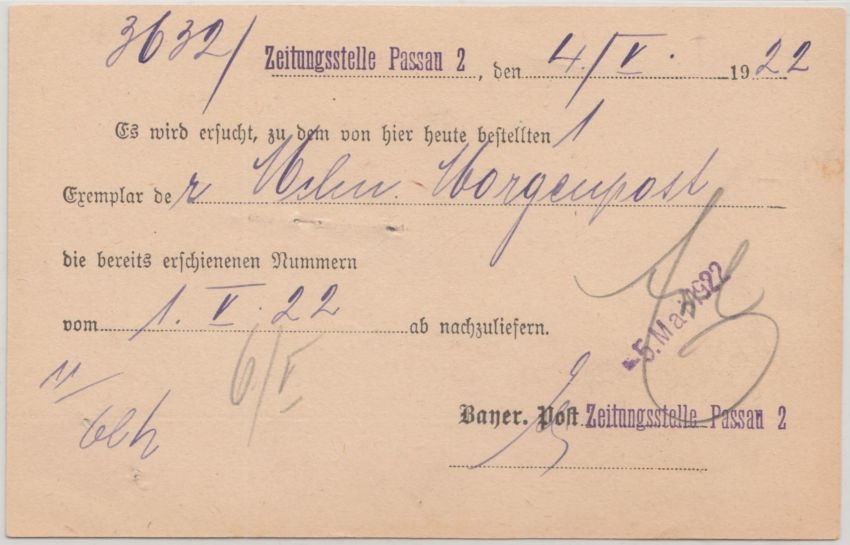 3632/ Zeitungsstelle Passau 2, den 4/V. 1922
Es wird ersucht, zu dem von hier heute bestellten 1
Exemplar der Morgenpost
die bereits erschienenen Nummern
vom 1. V. 22 ab nachzuliefern.
6/V
-5. Mai 1922
Bayer. Post Zeitungsstelle Passau 2